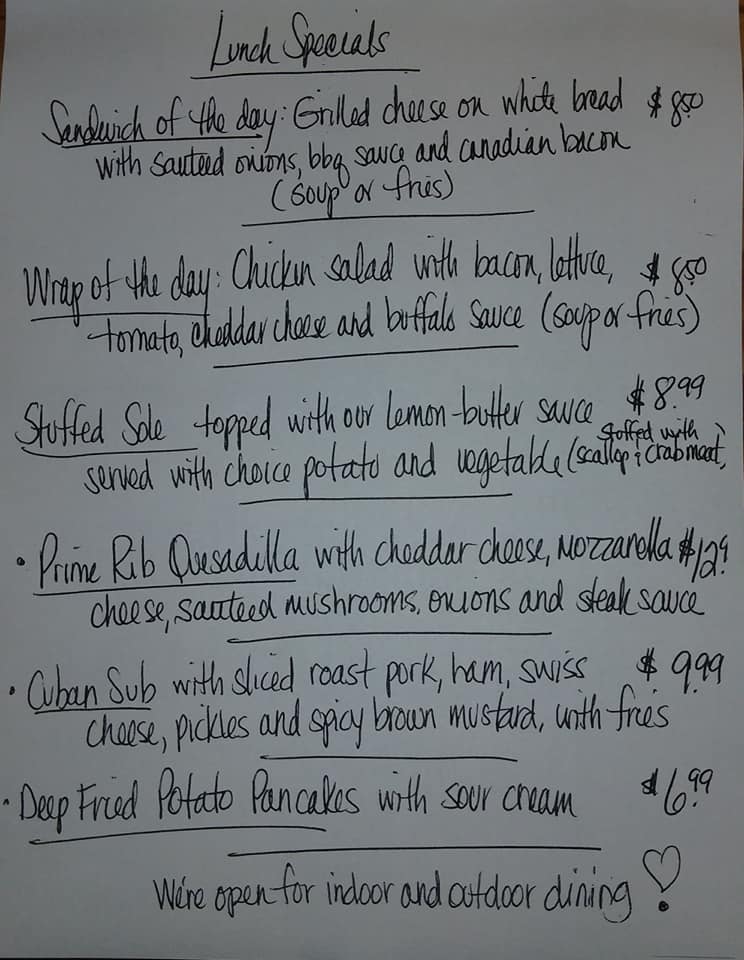 Lunch Specials
Sandwich of the day: Grilled cheese on white bread $8.50
with sauteed onions, bbq sauce and canadian bacon
(soup or fries)
Wrap of the day: Chicken salad with bacon, lettuce, $8.50
tomato, cheddar cheese and buffalo sauce (soup or fries)
Stuffed Sole topped with our lemon-butter sauce $8.99
served with choice potato and vegetable (stuffed with scallop & crabmeat)
• Prime Rib Quesadilla with cheddar cheese, mozzarella
cheese, sauteed mushrooms, onions and steak sauce
• Cuban Sub with sliced roast pork, ham, swiss $9.99
cheese, pickles and spicy brown mustard, with fries
• Deep Fried Potato Pancakes with sour cream $6.99
We're open for indoor and outdoor dining!